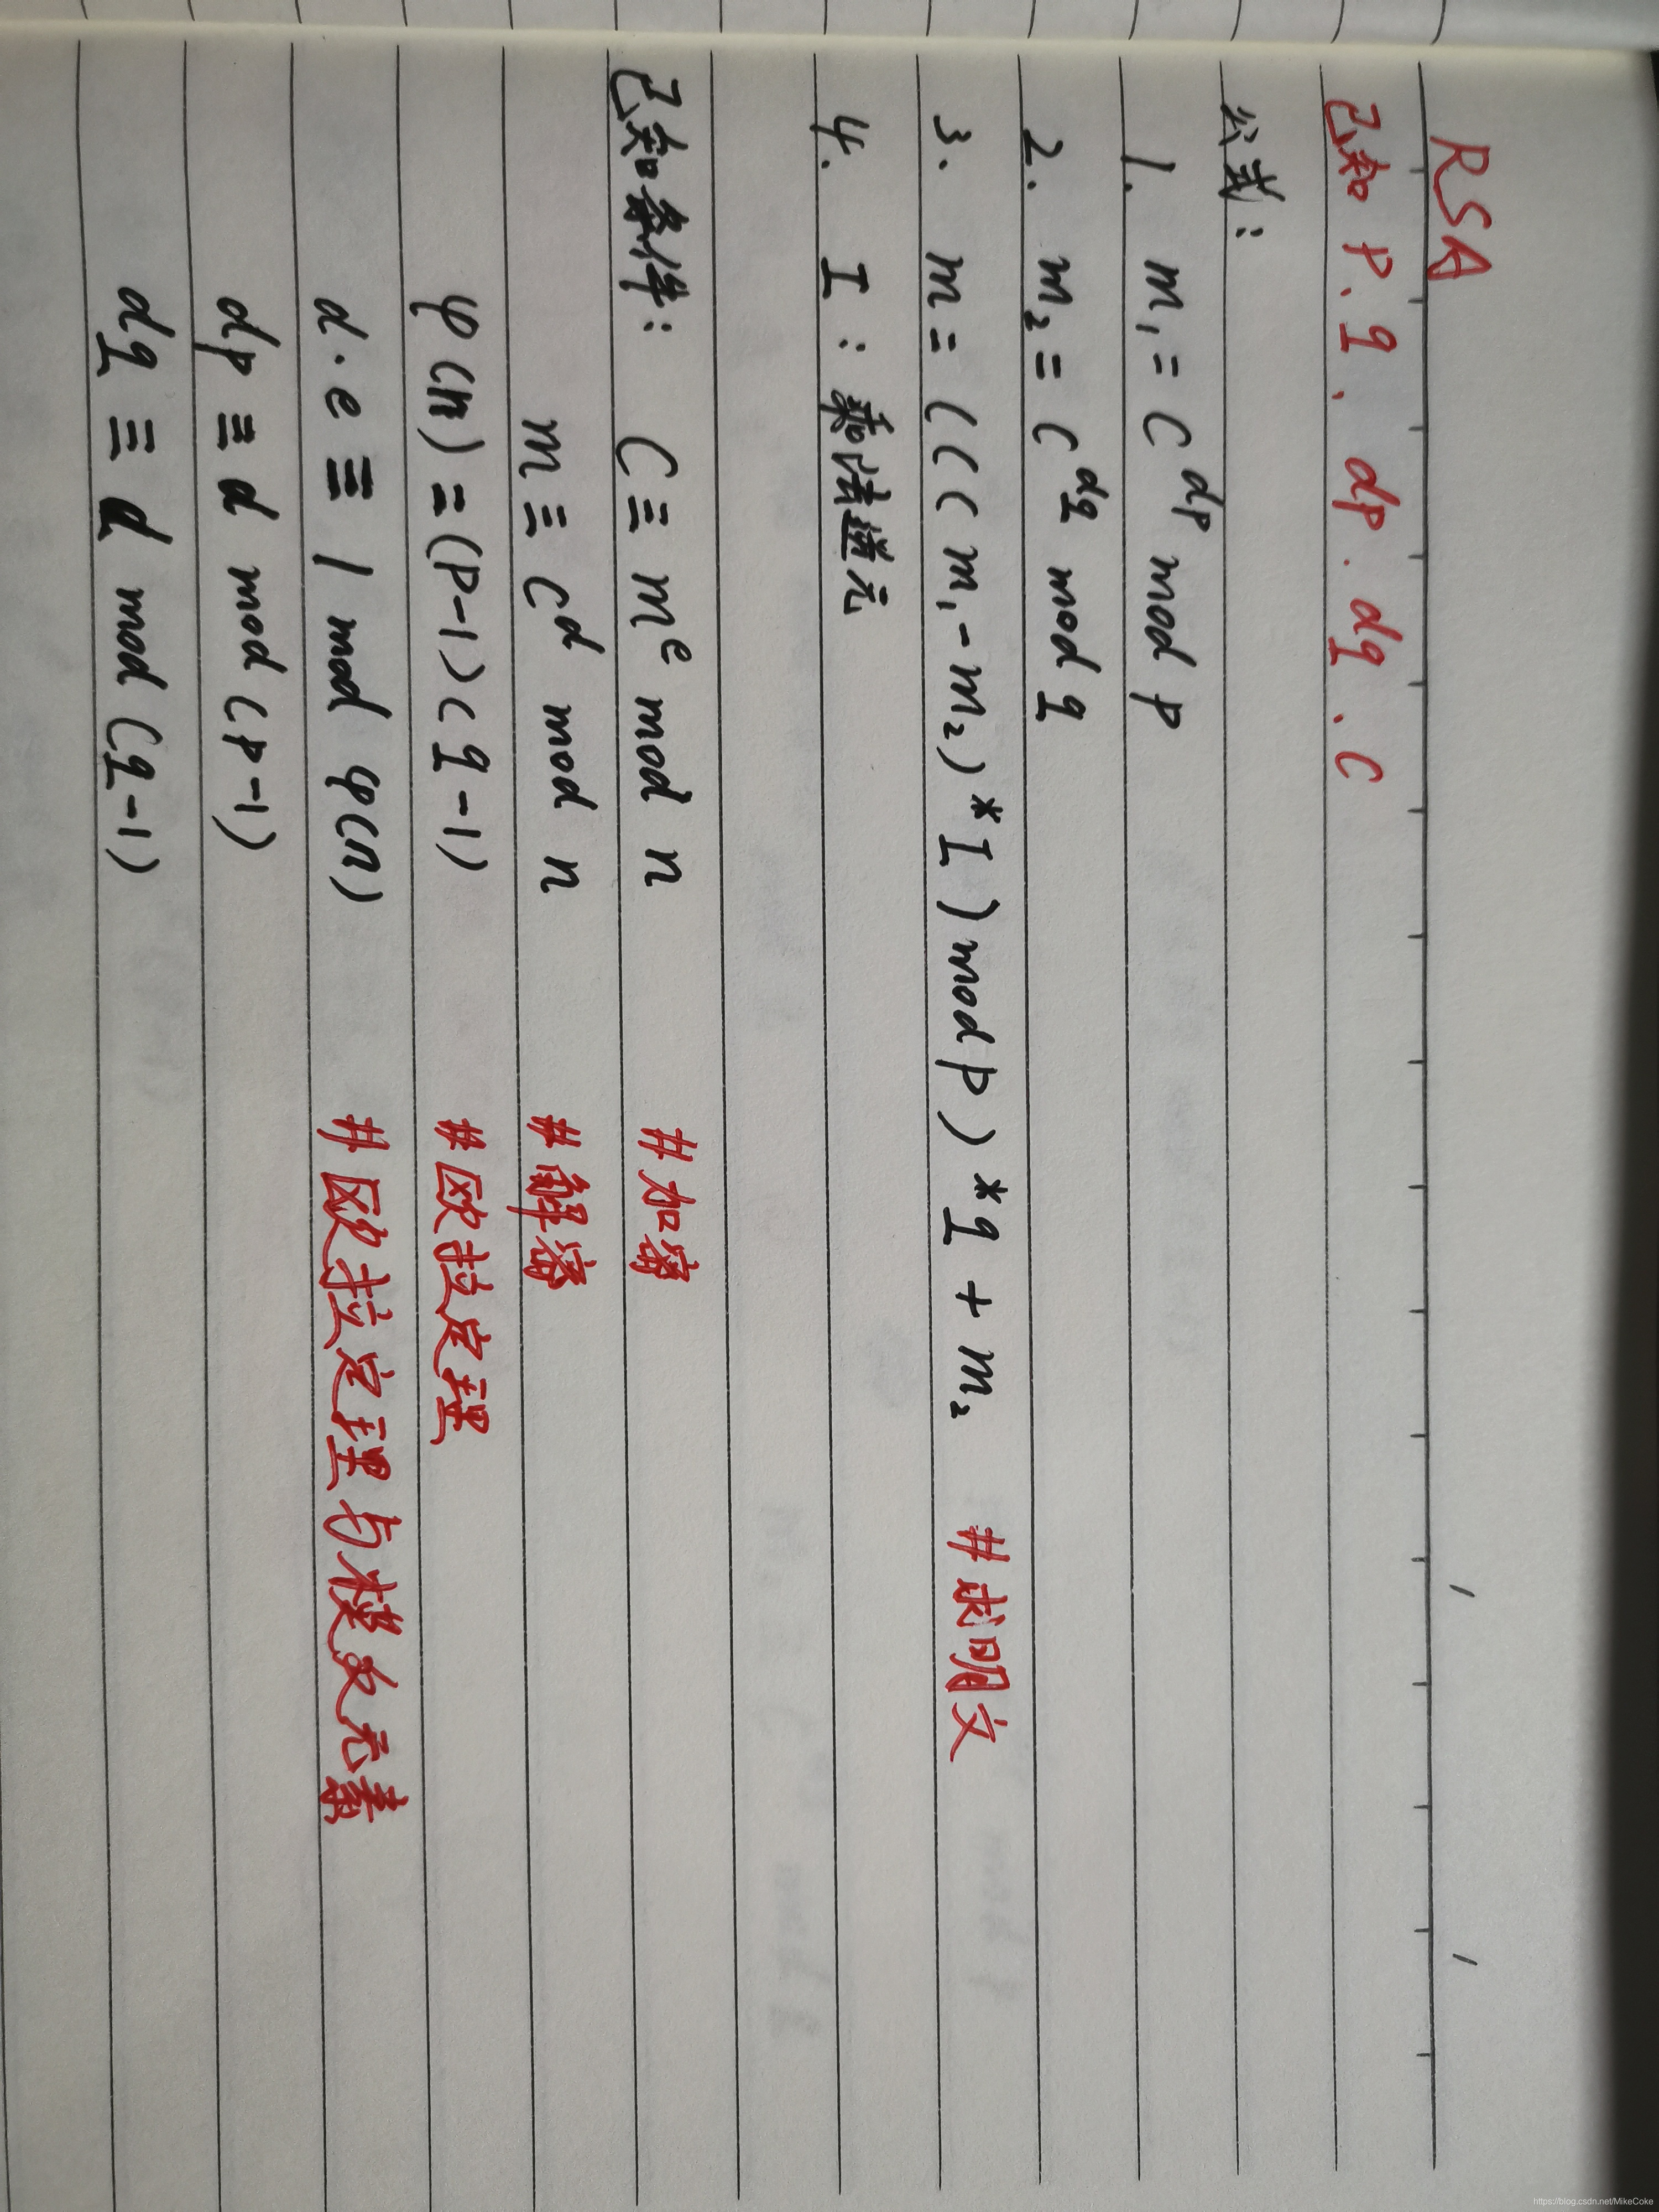 RSA
已知 p.q.dp.dq.c
公式:
1. m₁ = C^dp mod p
2. m₂ = C^dq mod q
3. m = (((m₁-m₂)*I) mod p)*q + m₂ #求明文
4. I:乘法逆元
已知条件: C ≡ m^e mod n #加密
m ≡ C^d mod n #解密
φ(n) = (p-1)(q-1) #欧拉定理
d·e ≡ 1 mod φ(n) #欧拉定理与模反元素
dp ≡ d mod (p-1)
dq ≡ d mod (q-1)
https://blog.csdn.net/MikeCoke